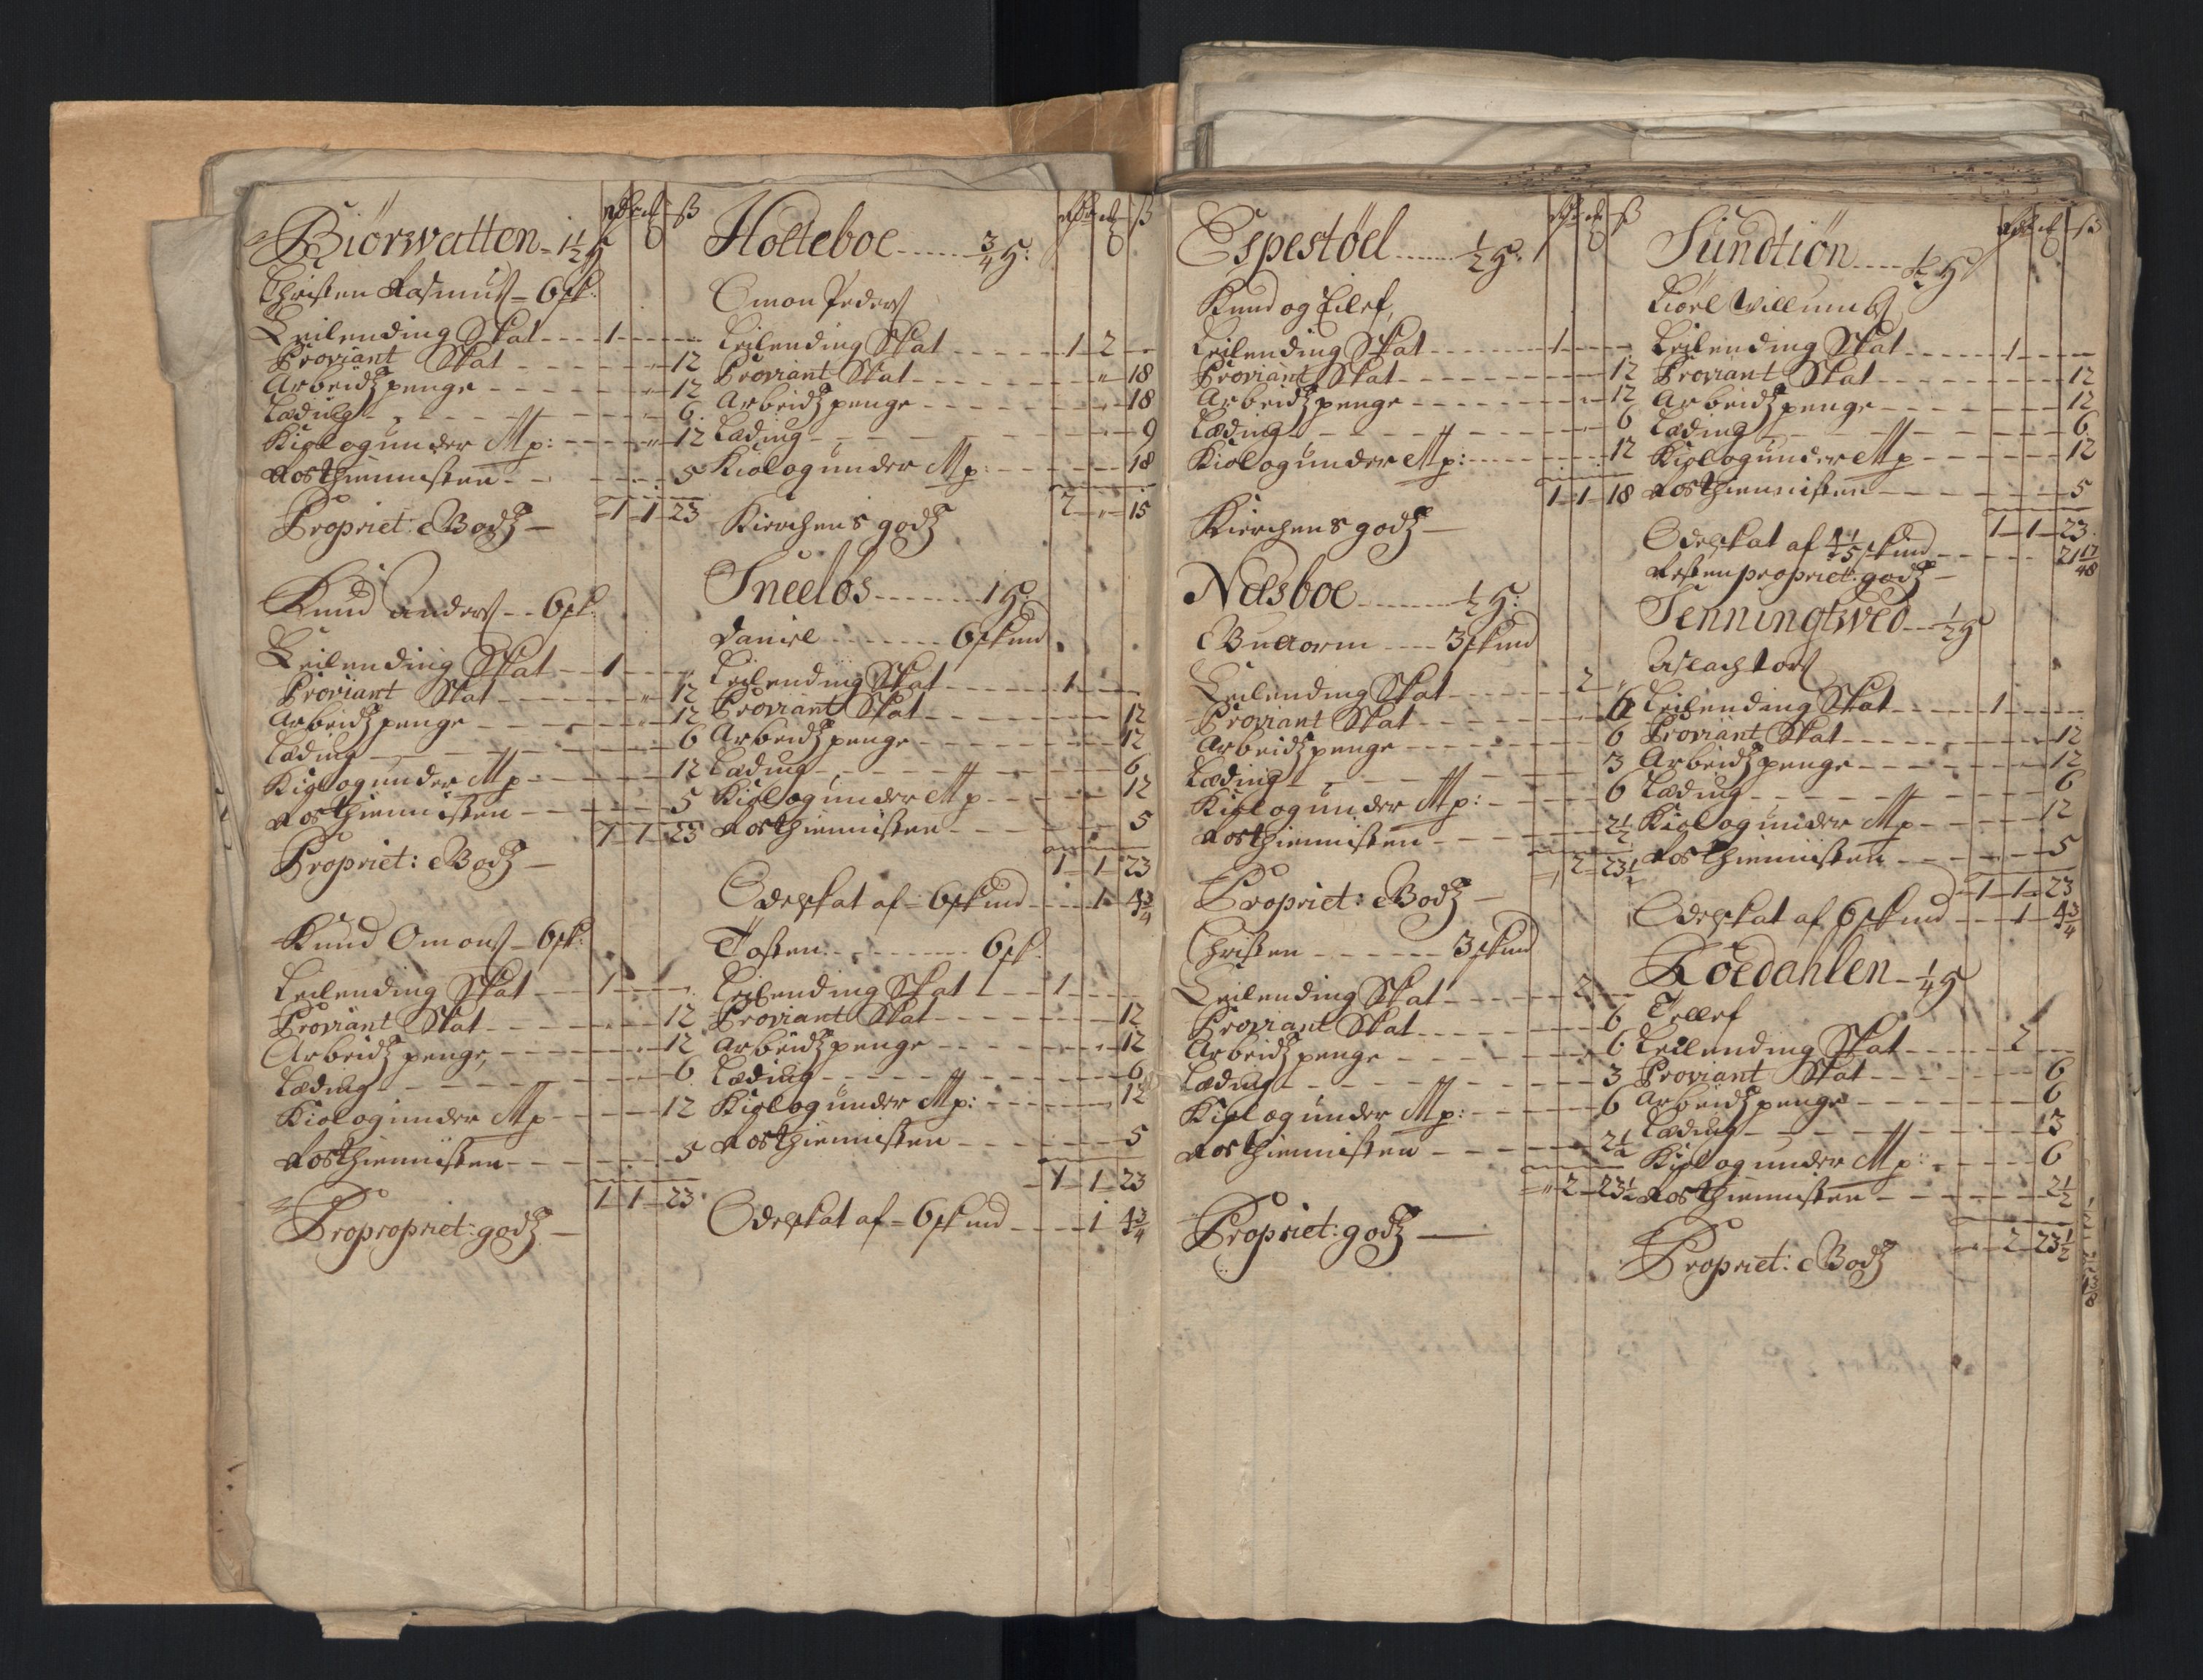 Biörwatten - 1½ H
Christen Rasmuß - 6 sk:
Leilending Skat - 1
Proviant Skat - 12
Arbeidzpenge - 12
Leding - 6
Kiol og under Mp: - 12
Rosthiennisten - 5
1 - 1 - 23
Propriet: Bodz -
Knud Anders - 6 sk:
Leilending Skat - 1
Proviant Skat - 12
Arbeidzpenge - 12
Leding - 6
Kiol og under Mp - 12
Rosthiennisten - 5
1 - 1 - 23
Propriet: Bodz -
Knud Omons - 6 sk:
Leilending Skat - 1
Proviant Skat - 12
Arbeidz penge, - 12
Leding - 6
Kiol og under Mp - 12
Rosthiennisten - 5
1 - 1 - 23
Propropriet: godz -
Holteboe - ¾ H:
Omon Peders
Leilending Skat - 1 - 2
Proviant Skat - 18
Arbeidzpenge - 18
Leding - 9
Kiol og under Mp: - 18
2 - " - 15
Kierchens godz
Sneelös - 1 H
Daniel - 6 skind
Leilending Skat - 1
Proviant Skat - 12
Arbeidzpenge - 12
Leding - 6
Kiol og under Mp - 12
Rosthiennisten - 5
1 - 1 - 23
Odelskat af - 6 skind - 1 - 4¾
Tosten - 6 sk.
Leilending Skat - 1
Proviant Skat - 12
Arbeidzpenge - 12
Leding - 6
Kiol og under Mp: - 12
Rosthiennisten - 5
1 - 1 - 23
Odelskat af - 6 skind - 1 4¾
Espestöel - ½ H:
Knud og Eilef,
Leilending Skat - 1
Proviant Skat - 12
Arbeidzpenge - 12
Leding - 6
Kiol og under Mp: - 12
1 - 1 - 18
Kierchens godz -
Næsboe - ½ H:
Guttorm - 3 skind
Leilending Skat - 2
Proviant Skat - 6
Arbeidzpenge - 6
Leding - 3
Kiol og under Mp: - 6
Rosthiennisten - 2½
2 - 23½
Propriet: Bodz -
Christen - 3 skind
Leilending Skat - 2
Proviant Skat - 6
Arbeidzpenge - 6
Leding - 3
Kiol og under Mp: - 6
Rosthiennisten - 2½
" - 2 - 23½
Propriet: godz -
Sundtiön - ½ H
Kioel Willums
Leilending Skat - 1
Proviant Skat - 12
Arbeidzpenge - 12
Leding - 6
Kiol og under Mp - 12
Rosthiennisten - 5
1 - 1 - 23
Odelskat af skind - 21 17/48
Resten propriet: godz -
Senningtwed - ½ H
Aslach Tors
Leilending Skat - 1
Proviant Skat - 12
Arbeidzpenge - 12
Leding - 6
Kiol og under Mp - 12
Rosthiennisten - 5
1 - 1 - 23
Odelskat af 6 skind - 1 - 4¾
Koedahlen - ¼ H
Tellef
Leilending Skat - 2
Proviant Skat - 6
Arbeidzpenge - 6
Leding - 3
Kiol og under Mp: - 6
Rosthiennisten - 2½
2 - 23½
Propriet: Bodz